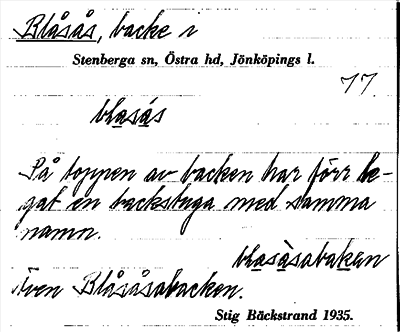 Blåsås, backe i
Stenberga sn, Östra hd, Jönköpings l.
77.
blasás
På toppen av backen har förr le-
gat en backstuga med samma
namn.
blasàsabaken
Även Blåsåsabacken.
Stig Bäckstrand 1935.